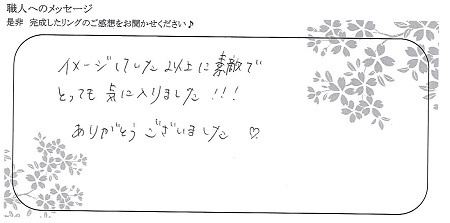 職人へのメッセージ
是非 完成したリングのご感想をお聞かせください♪
イメージしていた以上に素敵で
とっても気に入りました!!!
ありがとうございました ♡